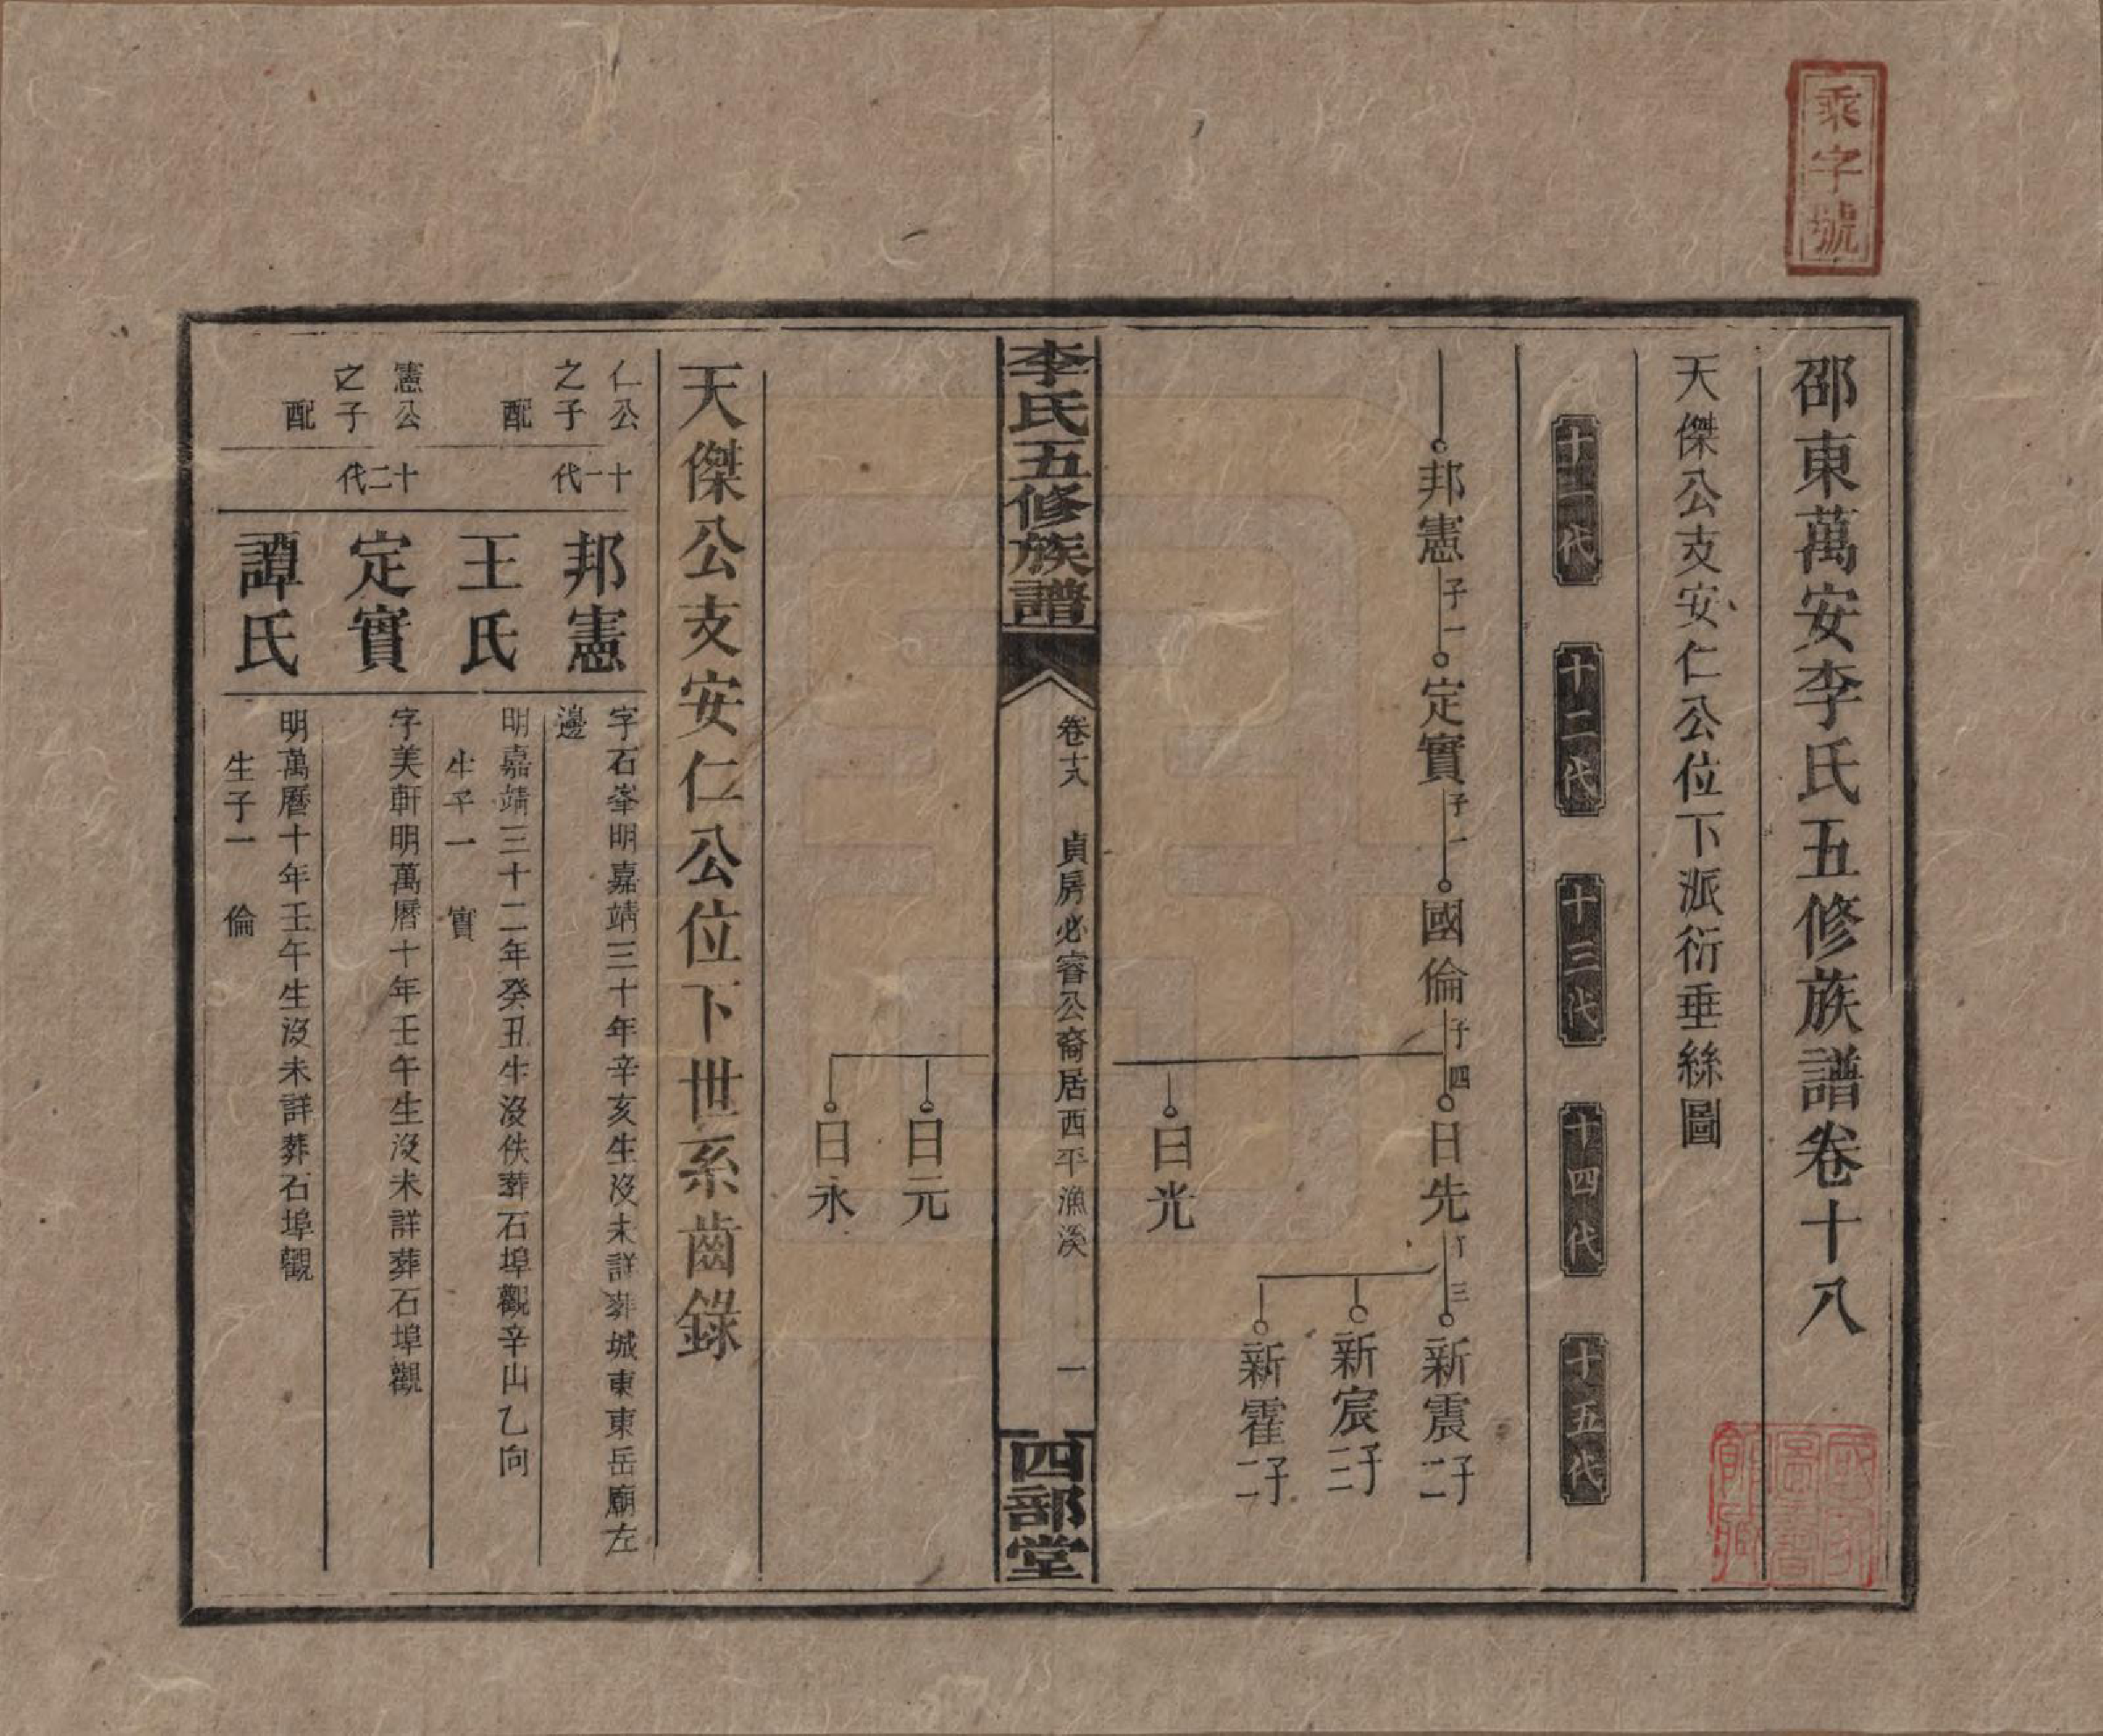 乘字號
邵東萬安李氏五修族譜卷十八
天傑公支安仁公位下派衍垂絲圖
十一代 十二代 十三代 十四代 十五代
邦憲 子一 定實 子一 國倫 子四 日先 子三 新震 子二
新宸 子二
新霍 子二
日光
李氏五修族譜 卷十八 貞房必睿公裔居西平漁溪 一 四部堂
日元
日永
天傑公支安仁公位下世系齒錄
仁公之子 十一代 邦憲 字石峯明嘉靖三十年辛亥生沒未詳葬城東東岳廟左
邊
配 王氏 明嘉靖三十二年癸丑生沒佚葬石埠觀辛山乙向
生子一 實
憲公之子 十二代 定實 字美軒明萬曆十年壬午生沒未詳葬石埠觀
配 譚氏 明萬曆十年壬午生沒未詳葬石埠觀
生子一 倫